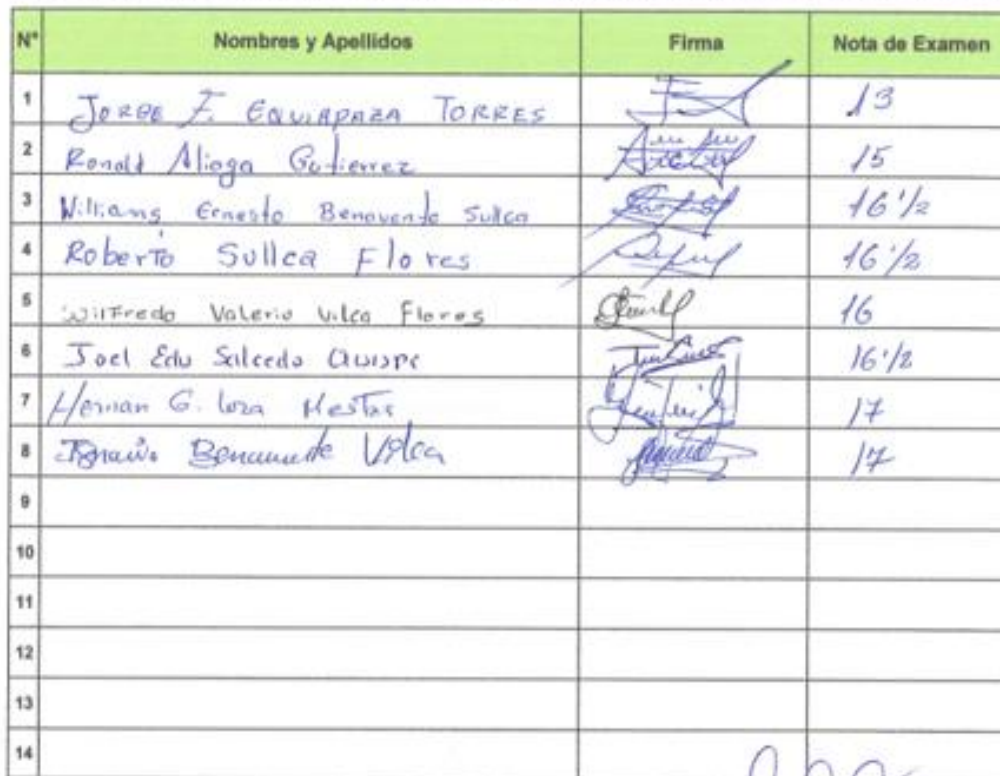 N° Nombres y Apellidos Firma Nota de Examen
1 JORGE F. EQUIAPAZA TORRES 13
2 Ronald Aliaga Gutierrez 15
3 Williams Ernesto Benavente Sullca 16 1/2
4 Roberto Sullca Flores 16 1/2
5 Wilfredo Valerio Vilca Flores 16
6 Joel Edu Salcedo Quispe 16 1/2
7 Hernan G. Loza Mestas 17
8 Benavente Vilca 17
9
10
11
12
13
14